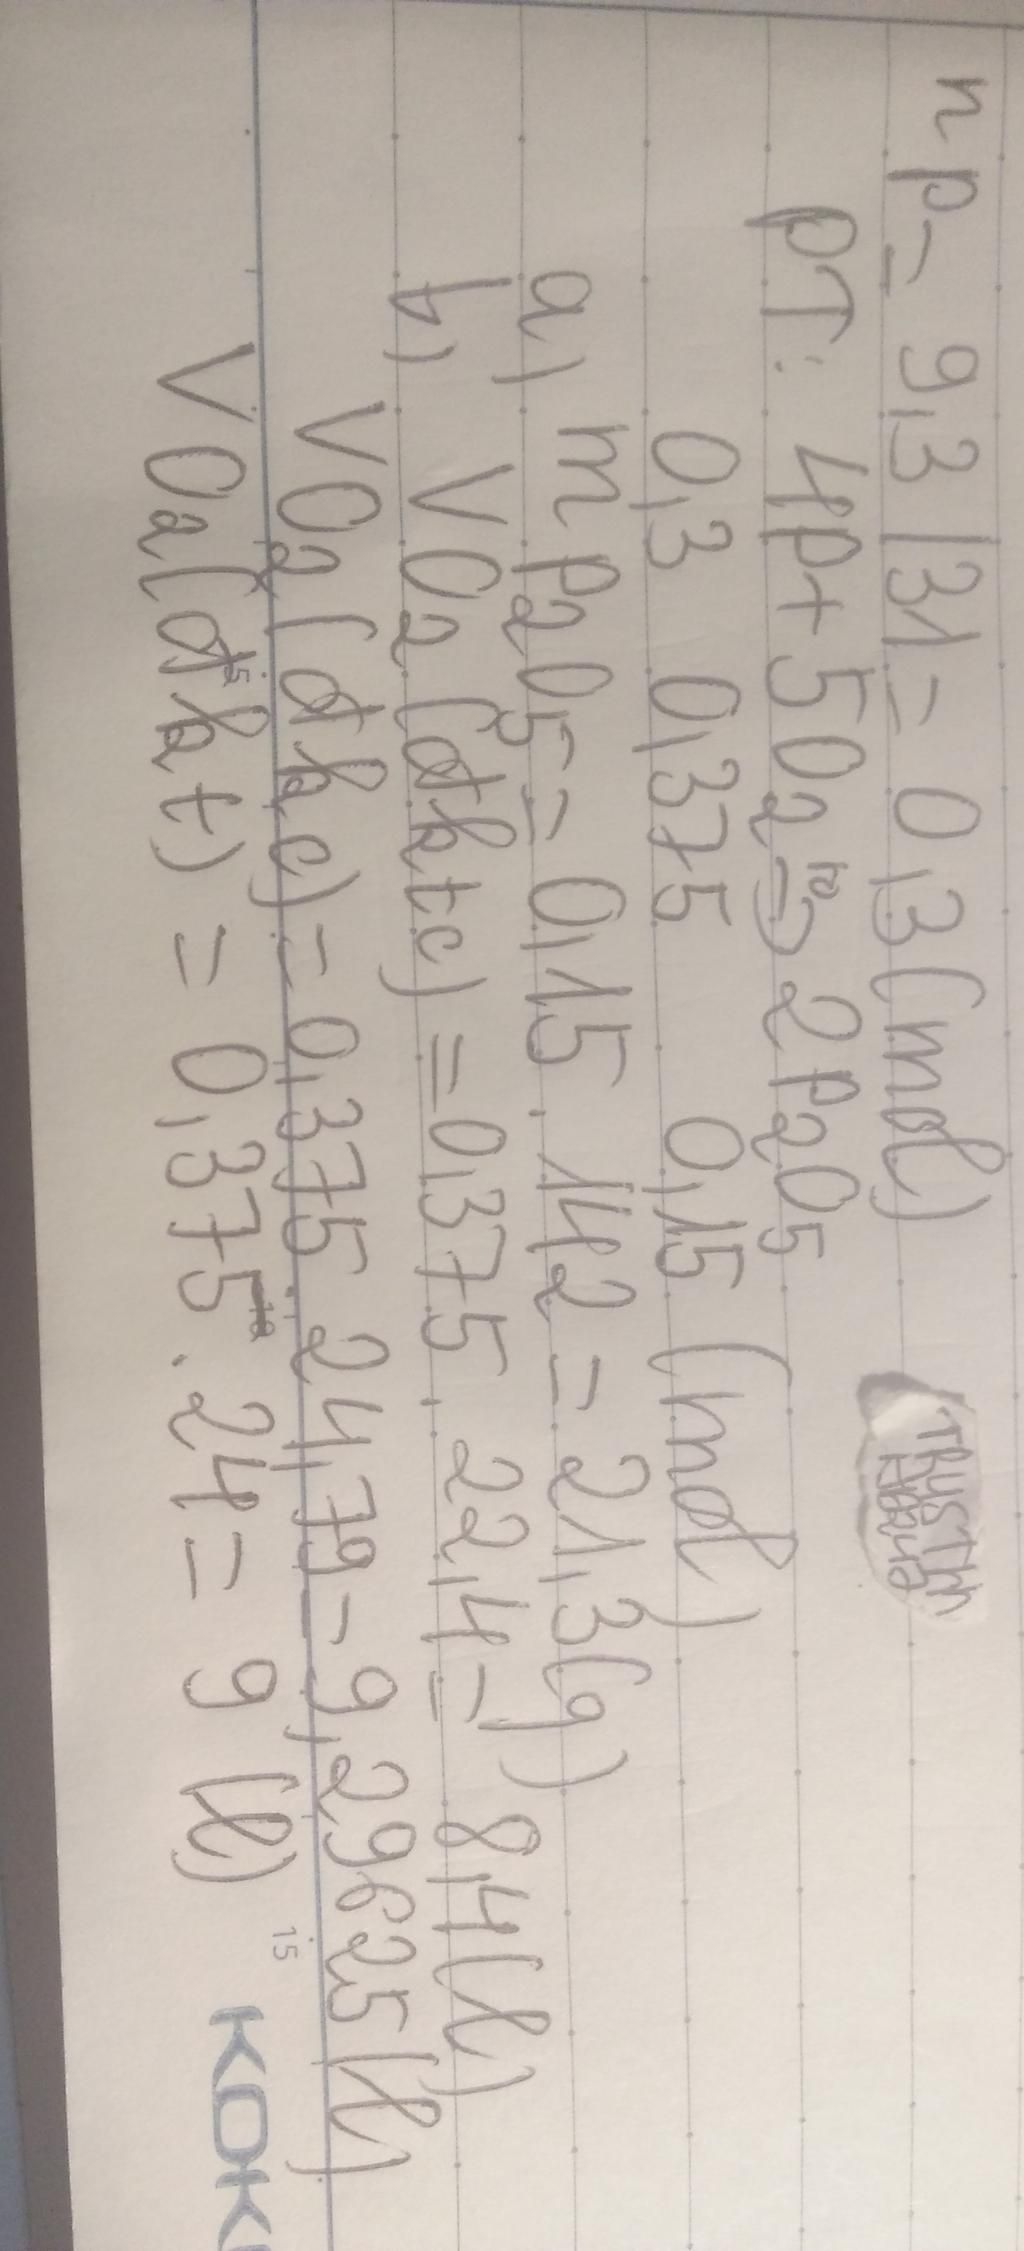 nP = 9,3/31 = 0,3 (mol)
PT: 4P + 5O2 t°→ 2P2O5
0,3 0,375 0,15 (mol)
a) mP2O5 = 0,15 . 142 = 21,3(g)
b) VO2 (đktc) = 0,375 . 22,4 = 8,4(l)
VO2 (đkc) = 0,375 . 24,79 = 9,29625(l)
VO2 (đkt) = 0,375 . 24 = 9 (l)
5
10
15
KOK